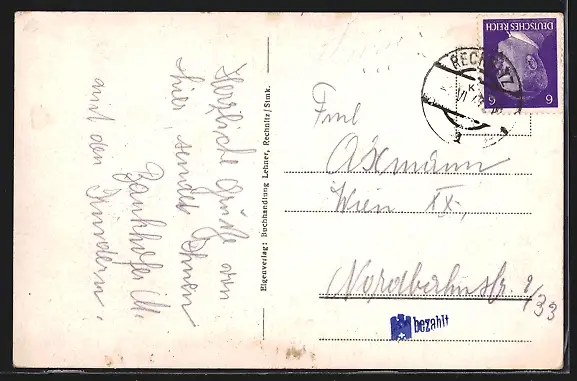 Herzliche Grüße von
hier, sendet Ihnen
M.
mit den Kindern.
Eigenverlag: Buchhandlung Lehner, Rechnitz/Stmk.
DEUTSCHES REICH
6 6
RECHNITZ
Axmann
Wien IX,
Nordbahnstr. 9/33
bezahlt